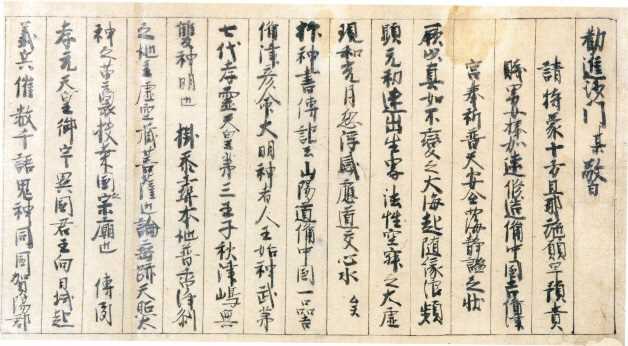 勧進沙門 某敬白
請特蒙十方旦那施願早預貴
賤男女奉加速修造備中国吉備津
宮奉祈普天安全海静謐之状
厥以真如不変之大海起随縁類
顕元初迷出生 法性空寂之大虚
現和光月忽浮感応道交心水 爰
神書伝記云山陽道備中国一品吉
備津彦命大明神者人王始神武第
七代孝霊天皇第三王子秋津嶋無
雙神明也 掛忝本地普
之地主虚空蔵菩薩也論垂跡天照太
神之苗裔扶桑国宗廟也 伝聞
孝元天皇御宇異国君主向日域起
義兵催数千語鬼神同国賀陽郡